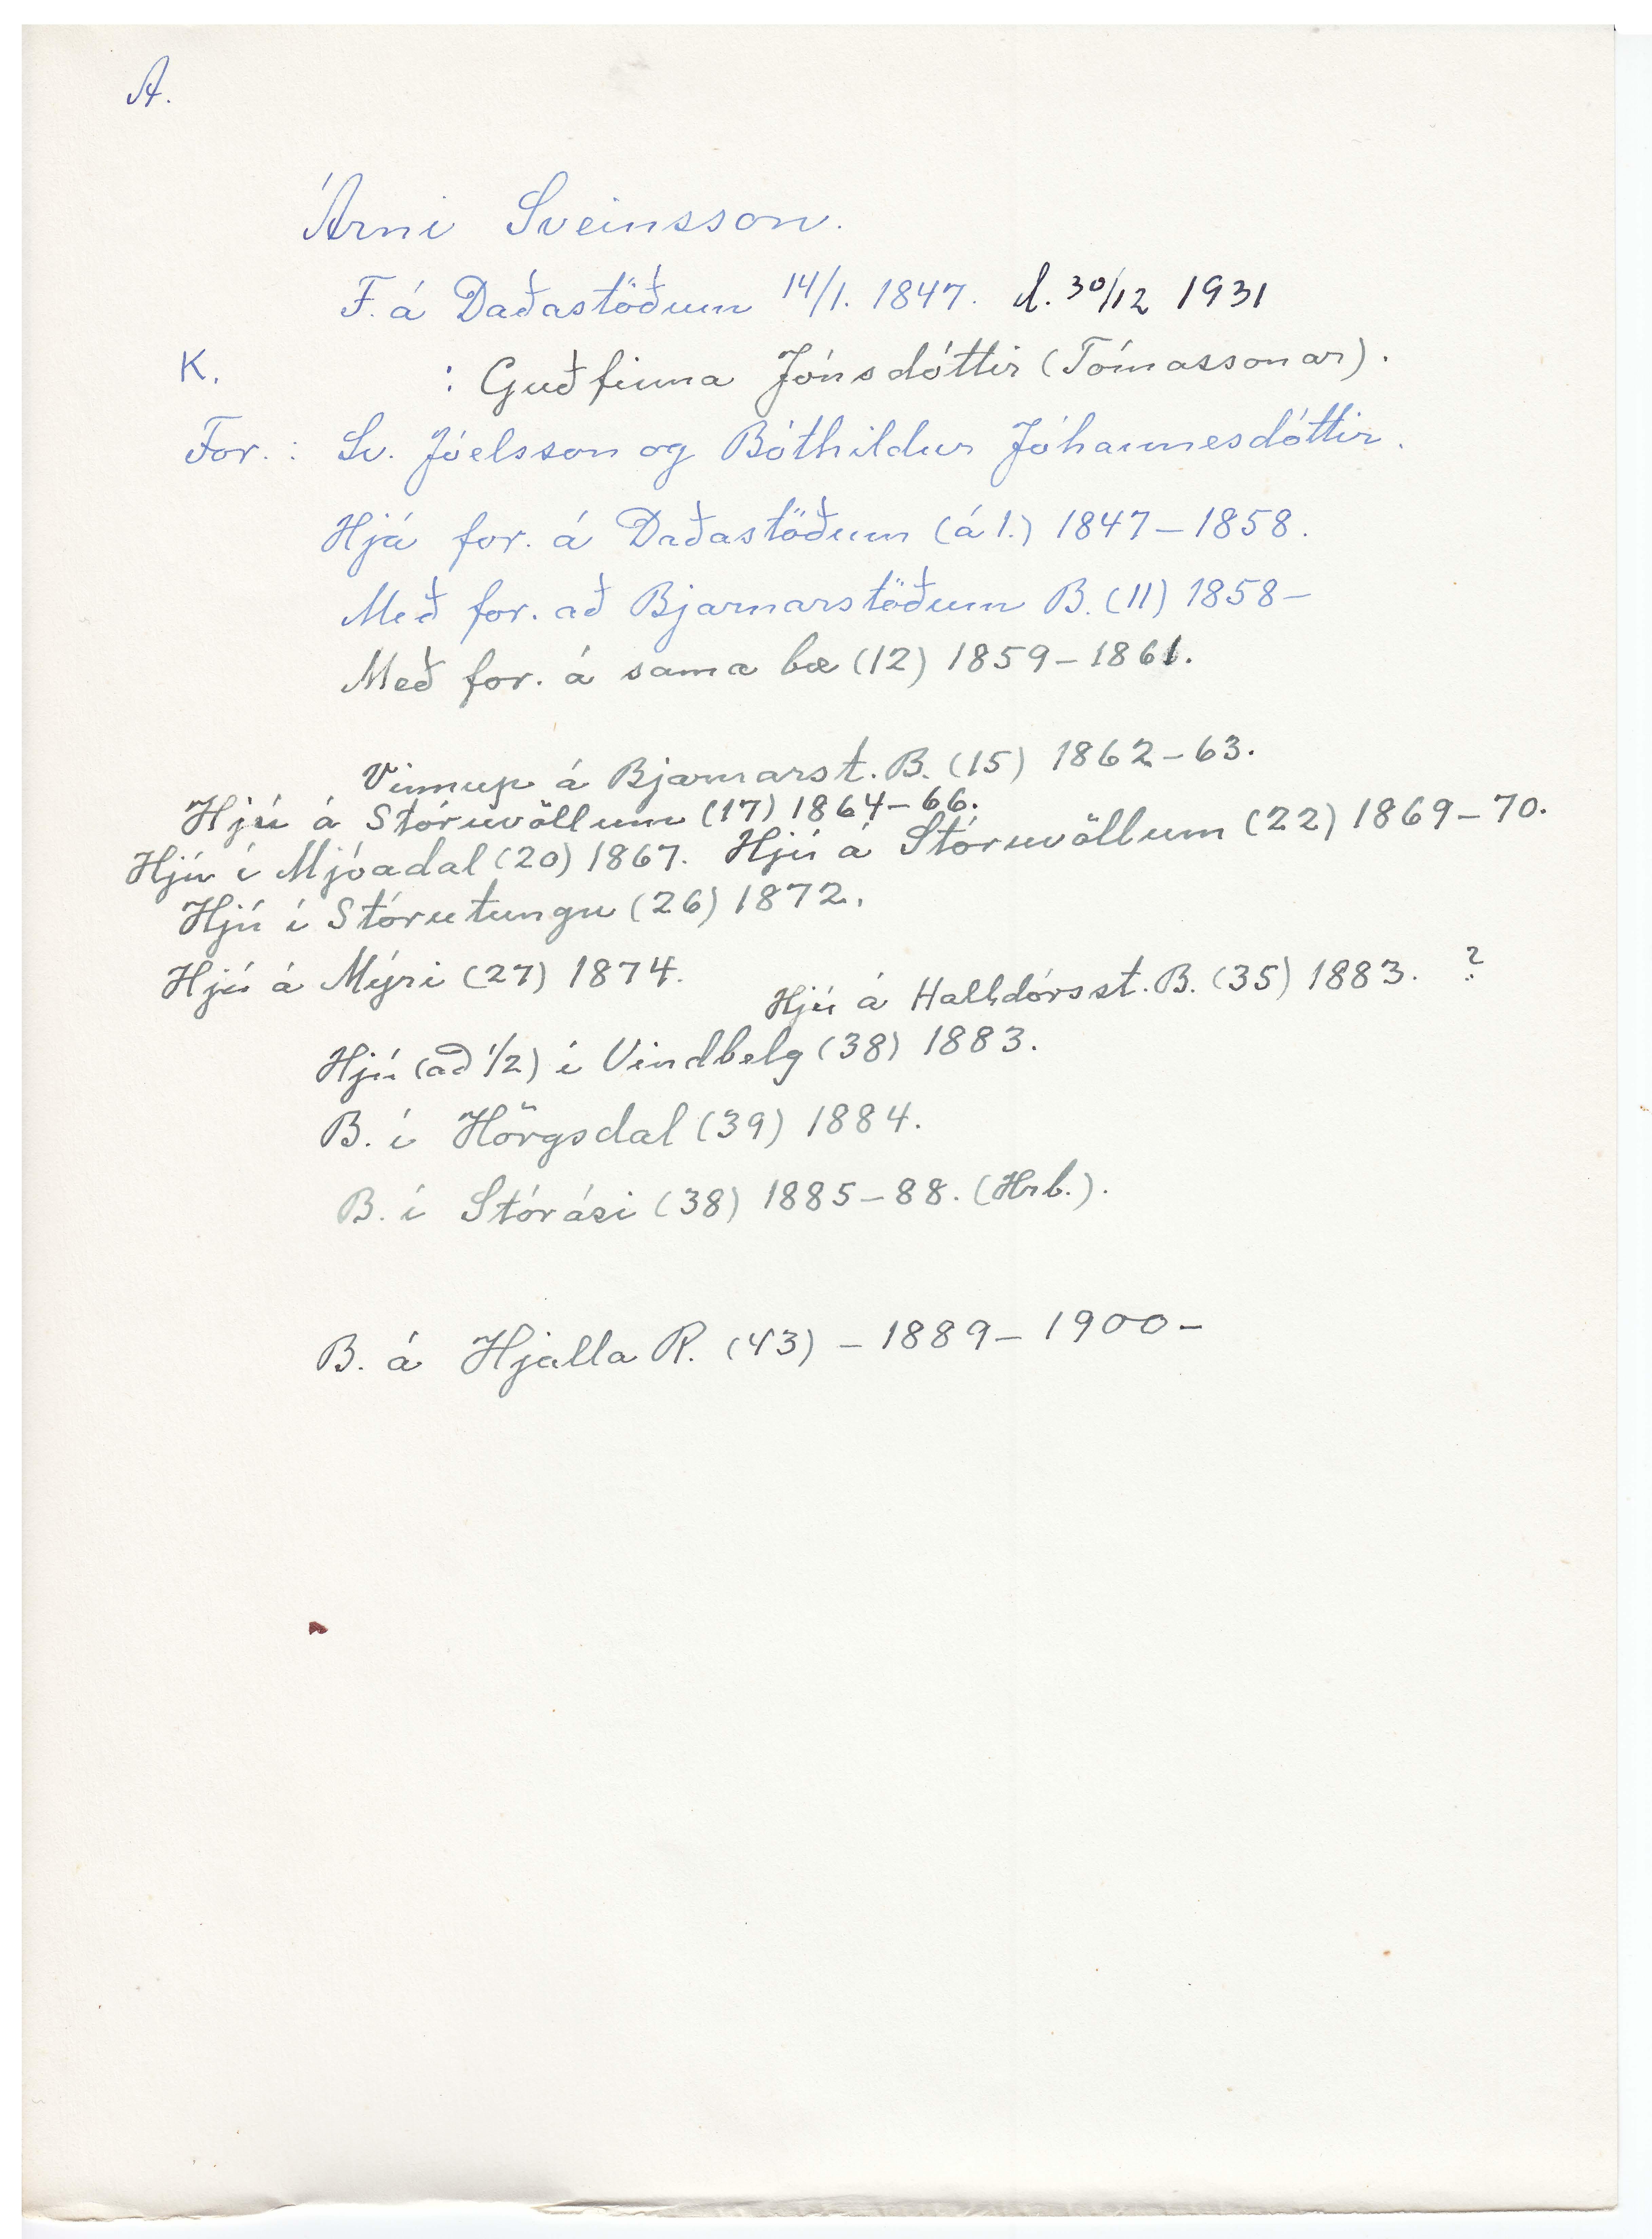 A.
Árni Sveinsson.
F. á Daðastöðum 14/1. 1847. d. 30/12 1931
K. : Guðfinna Jónsdóttir (Tómassonar).
For. : Sv. Jóelsson og Bóthildur Jóhannesdóttir.
Hjá for. á Daðastöðum (á 1.) 1847 – 1858.
Með for. að Bjarnarstöðum B. (11) 1858 –
Með for. á sama bæ (12) 1859 – 1861.
Vinnup á Bjarnarst. B. (15) 1862 – 63.
Hjú á Stóruvöllum (17) 1864 – 66.
Hjú í Mjóadal (20) 1867. Hjú á Stóruvöllum (22) 1869 – 70.
Hjú í Stórutungu (26) 1872.
Hjú á Mýri (27) 1874.
Hjú á Halldórsst. B. (35) 1883. ?
Hjú (að 1/2) í Vindbelg (38) 1883.
B. í Hörgsdal (39) 1884.
B. í Stórási (38) 1885 – 88. (Hrb.).
B. á Hjalla R. (43) – 1889 – 1900 –